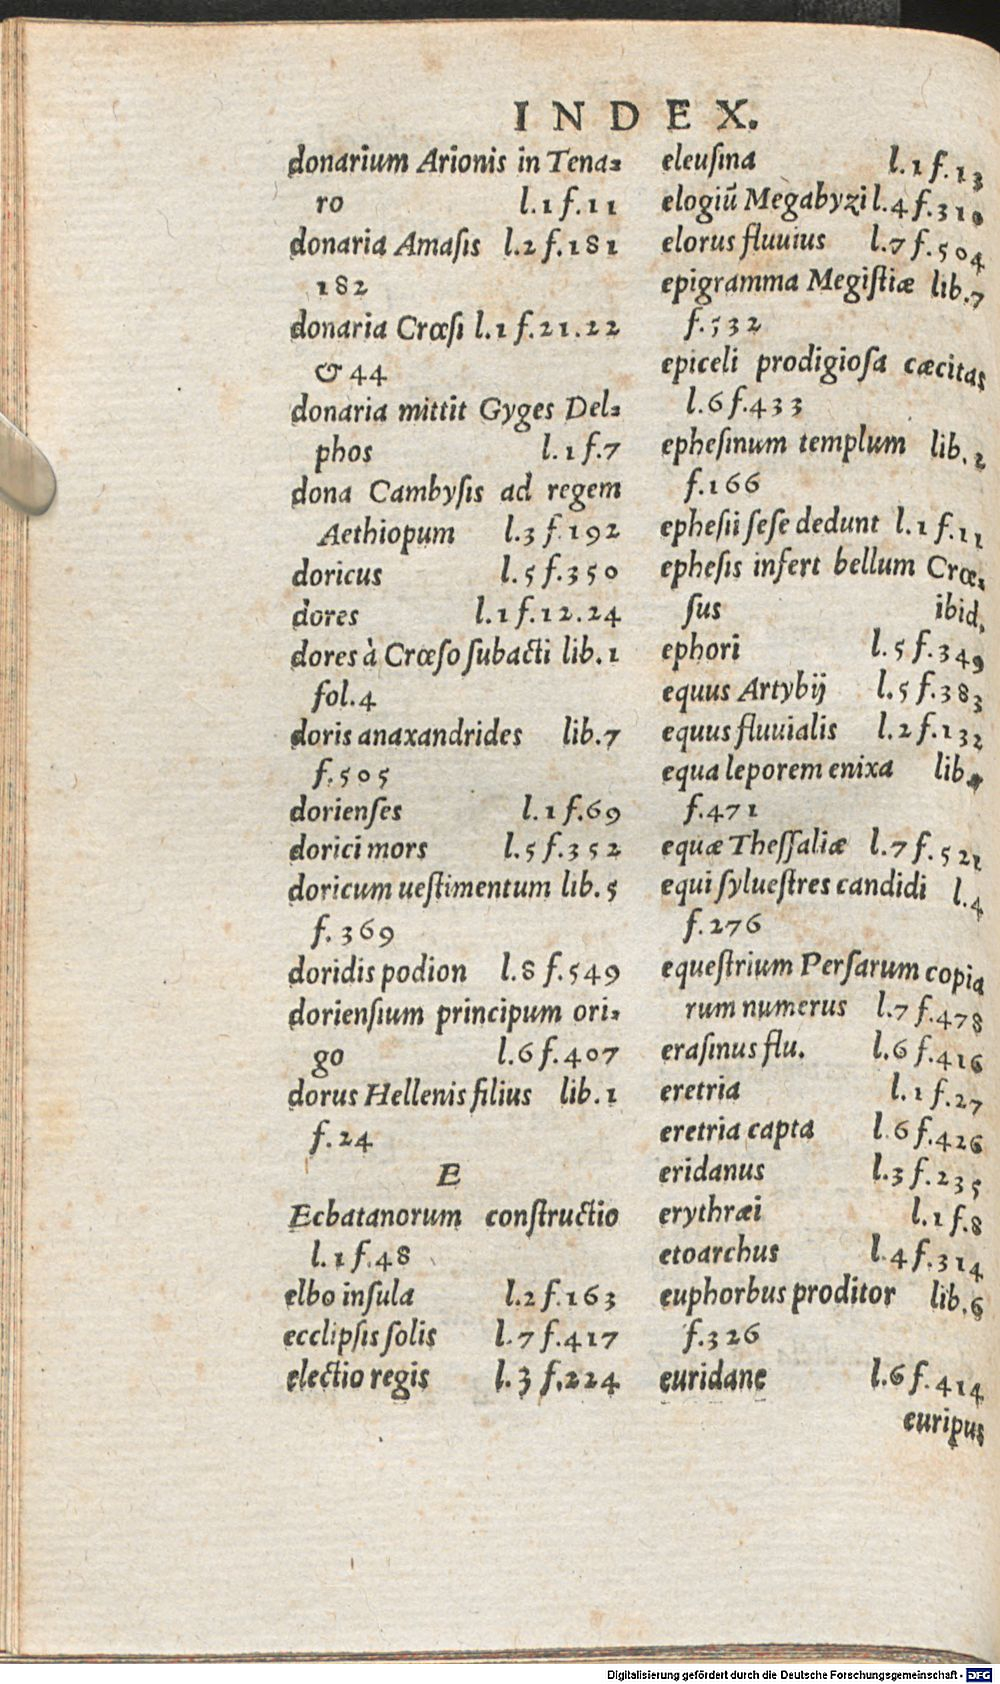 INDEX.
donarium Arionis in Tena⸗
ro l.1 f.11
donaria Amaſis l.2 f.181
182
donaria Crœſi l.1 f.21.22
& 44
donaria mittit Gyges Del⸗
phos l.1 f.7
dona Cambyſis ad regem
Aethiopum l.3 f.192
doricus l.5 f.350
dores l.1 f.12.24
dores à Crœſo ſubacti lib.1
fol.4
doris anaxandrides lib.7
f.505
dorienſes l.1 f.69
dorici mors l.5 f.352
doricum ueſtimentum lib.5
f.369
doridis podion l.8 f.549
dorienſium principum ori⸗
go l.6 f.407
dorus Hellenis filius lib.1
f.24
E
Ecbatanorum conſtructio
l.1 f.48
elbo inſula l.2 f.163
ecclipſis ſolis l.7 f.417
electio regis l.3 f.224
eleuſina l.1 f.13
elogiū Megabyzi l.4 f.310
elorus fluuius l.7 f.504
epigramma Megiſtiæ lib.7
f.532
epiceli prodigioſa cæcitas
l.6 f.433
epheſinum templum lib.2
f.166
epheſii ſeſe dedunt l.1 f.11
epheſis infert bellum Crœ⸗
ſus ibid.
ephori l.5 f.349
equus Artybij l.5 f.383
equus fluuialis l.2 f.132
equa leporem enixa lib.
f.471
equæ Theſſaliæ l.7 f.521
equi ſylueſtres candidi l.4
f.276
equeſtrium Perſarum copia
rum numerus l.7 f.478
eraſinus flu. l.6 f.416
eretria l.1 f.27
eretria capta l.6 f.426
eridanus l.3 f.235
erythræi l.1 f.8
etoarchus l.4 f.314
euphorbus proditor lib.6
f.326
euridane l.6 f.414
euripus
Digitalisierung gefördert durch die Deutsche Forschungsgemeinschaft - DFG